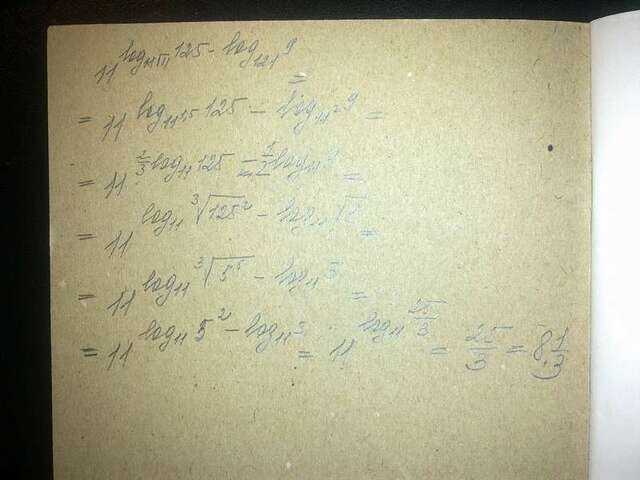 11^{log_{11√11} 125 - log_{121} 9} =
= 11^{log_{11^{1,5}} 125 - log_{11^2} 9} =
= 11^{\frac{2}{3} log_{11} 125 - \frac{1}{2} log_{11} 9} =
= 11^{log_{11} \sqrt[3]{125^2} - log_{11} \sqrt{9}} =
= 11^{log_{11} \sqrt[3]{5^6} - log_{11} 3} =
= 11^{log_{11} 5^2 - log_{11} 3} = 11^{log_{11} \frac{25}{3}} = \frac{25}{3} = 8\frac{1}{3}